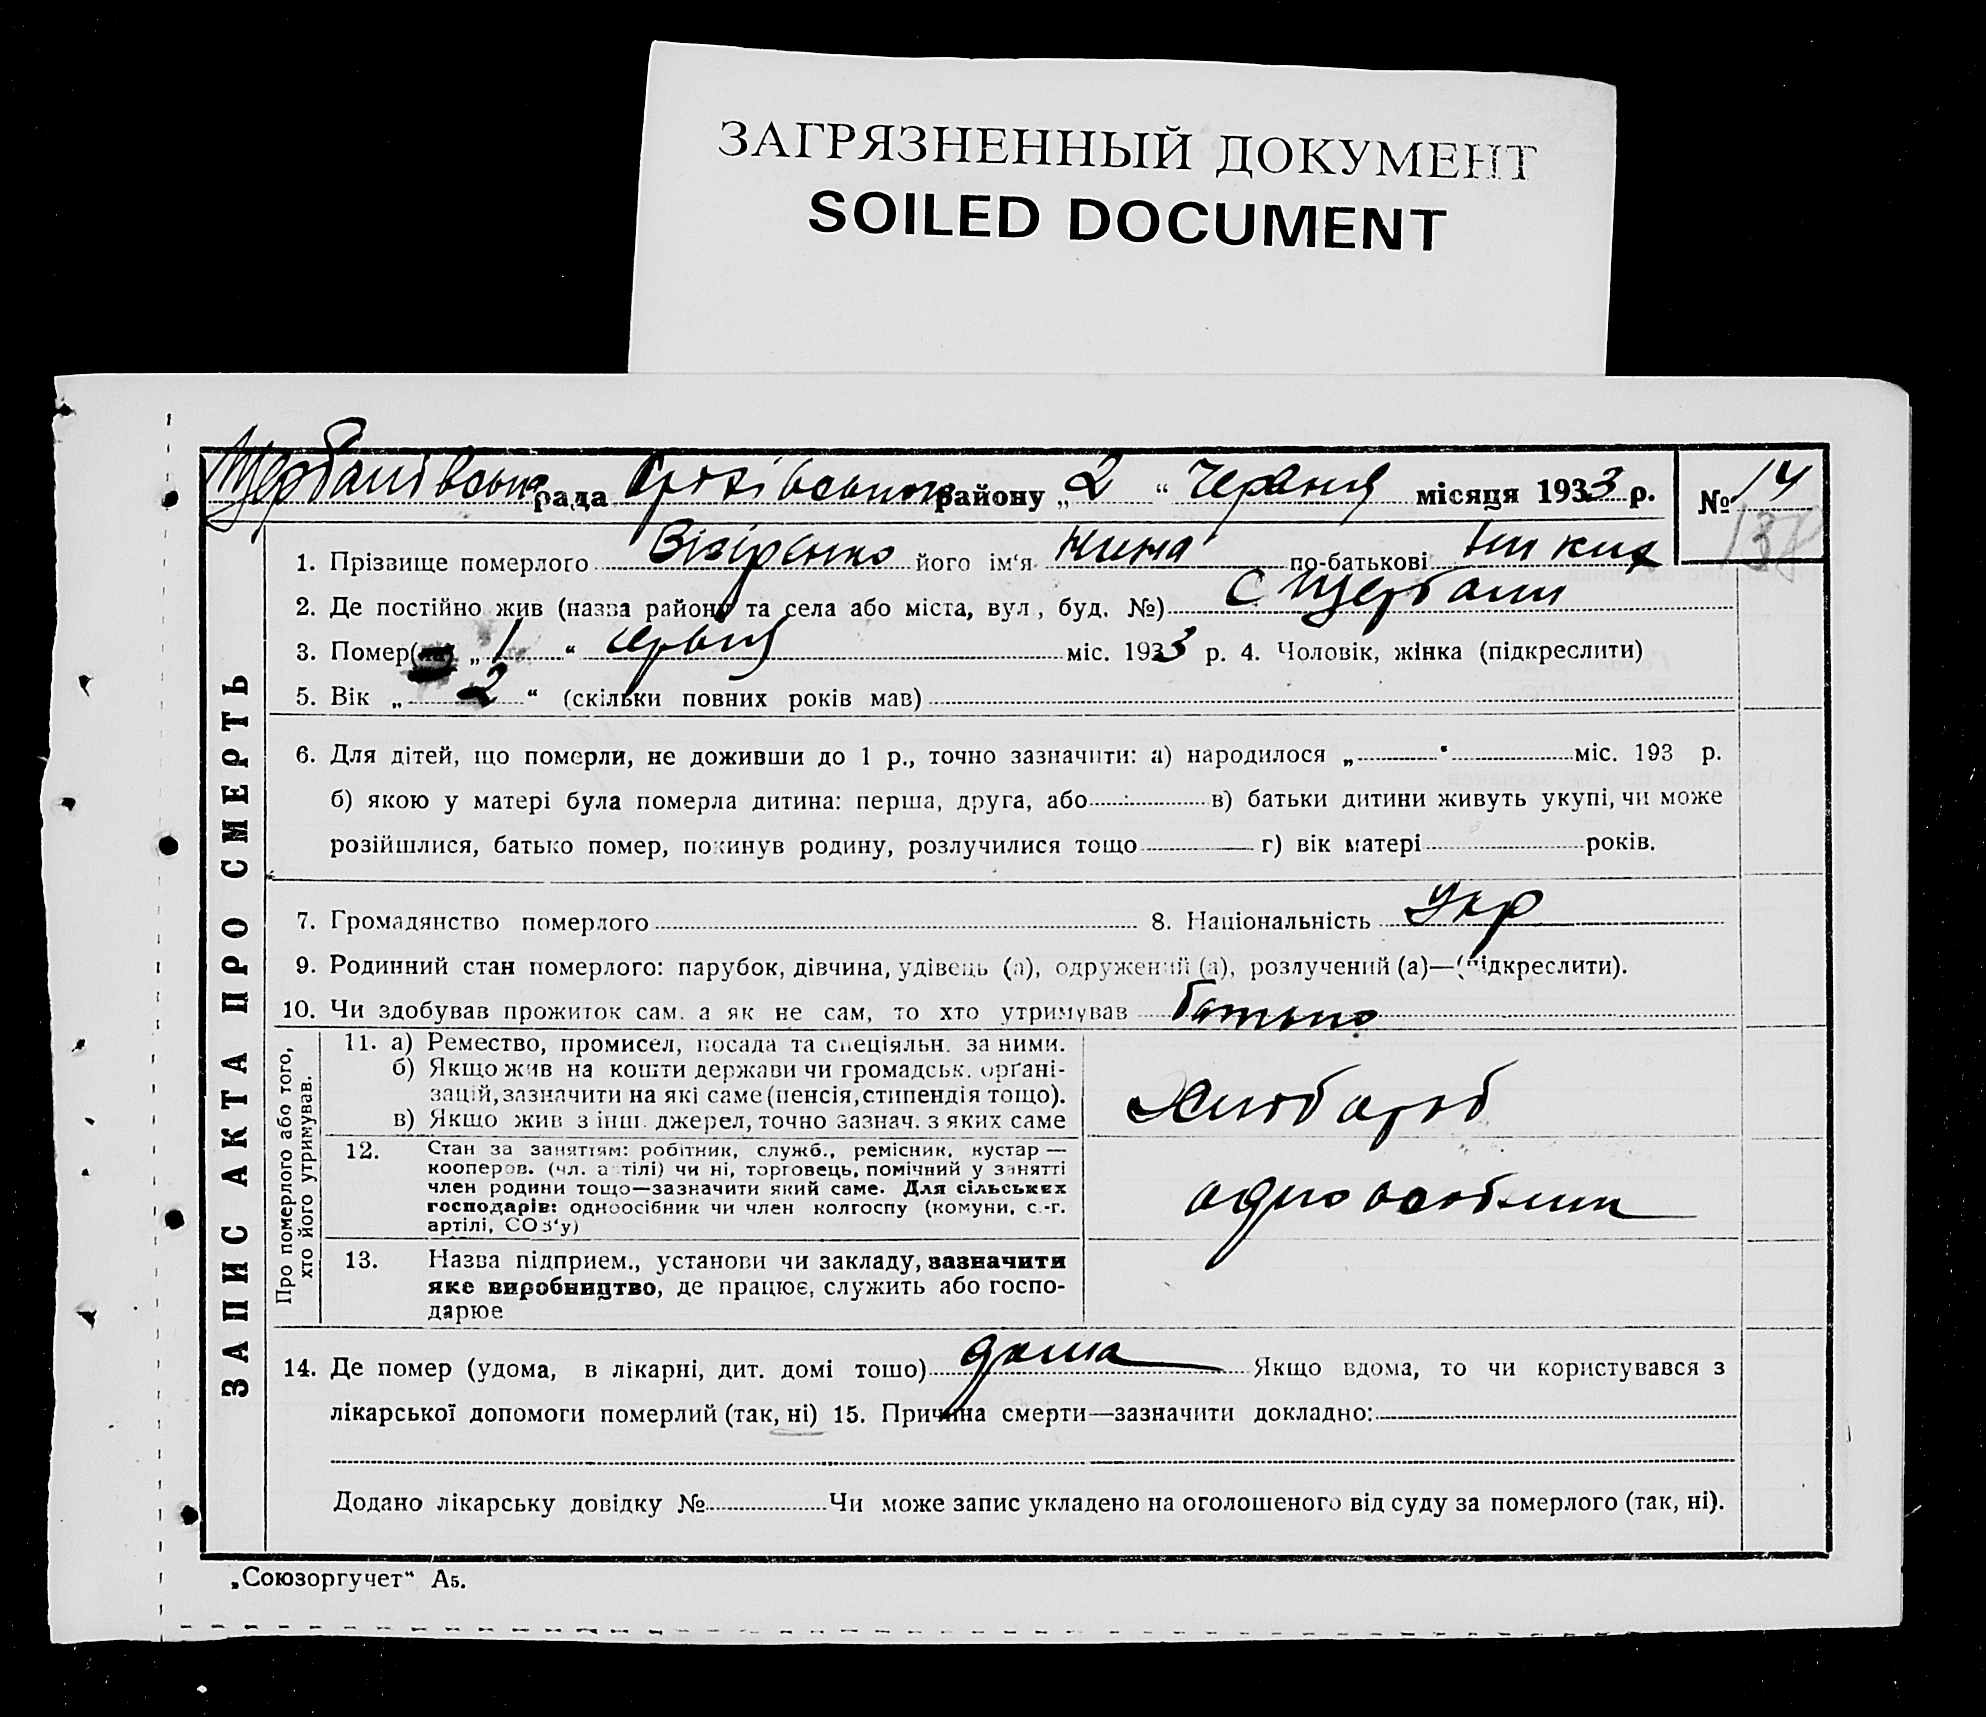 ЗАГРЯЗНЕННЫЙ ДОКУМЕНТ
SOILED DOCUMENT
рада району „2“ Червня місяця 1933 р. № 14
ЗАПИС АКТА ПРО СМЕРТЬ
1. Прізвище померлого його ім‘я по-батькові
2. Де постійно жив (назва району та села або міста, вул., буд. №) с Щербани
3. Помер( „1“ міс. 1933 р. 4. Чоловік, жінка (підкреслити)
5. Вік „2“ (скільки повних років мав)
6. Для дітей, що померли, не доживши до 1 р., точно зазначити: а) народилося „ “ міс. 193 р.
б) якою у матері була померла дитина: перша, друга, або в) батьки дитини живуть укупі, чи може
розійшлися, батько помер, покинув родину, розлучилися тощо г) вік матері років.
7. Громадянство померлого 8. Національність Укр
9. Родинний стан померлого: парубок, дівчина, удівець (а), одружений (а), розлучений (а)—(підкреслити).
10. Чи здобував прожиток сам. а як не сам, то хто утримував батько
Про померлого або того,
хто його утримував.
11. а) Ремество, промисел, посада та спеціяльн. за ними.
б) Якщо жив на кошти держави чи громадськ. орґані-
зацій, зазначити на які саме (пенсія, стипендія тощо).
в) Якщо жив з інш. джерел, точно зазнач. з яких саме
Хлібороб
12. Стан за заняттям: робітник, служб., ремісник, кустар —
кооперов. (чл. артілі) чи ні, торговець, помічний у занятті
член родини тощо—зазначити який саме. Для сільських
господарів: одноосібник чи член колгоспу (комуни, с.-г.
артілі, СОЗ‘у)
13. Назва підприєм., установи чи закладу, зазначити
яке виробництво, де працює, служить або госпо-
дарює
14. Де помер (удома, в лікарні, дит. домі тощо) дома Якщо вдома, то чи користувався з
лікарської допомоги померлий (так, ні) 15. Причина смерти—зазначити докладно:
Додано лікарську довідку № Чи може запис укладено на оголошеного від суду за померлого (так, ні).
„Союзоргучет“ А5.